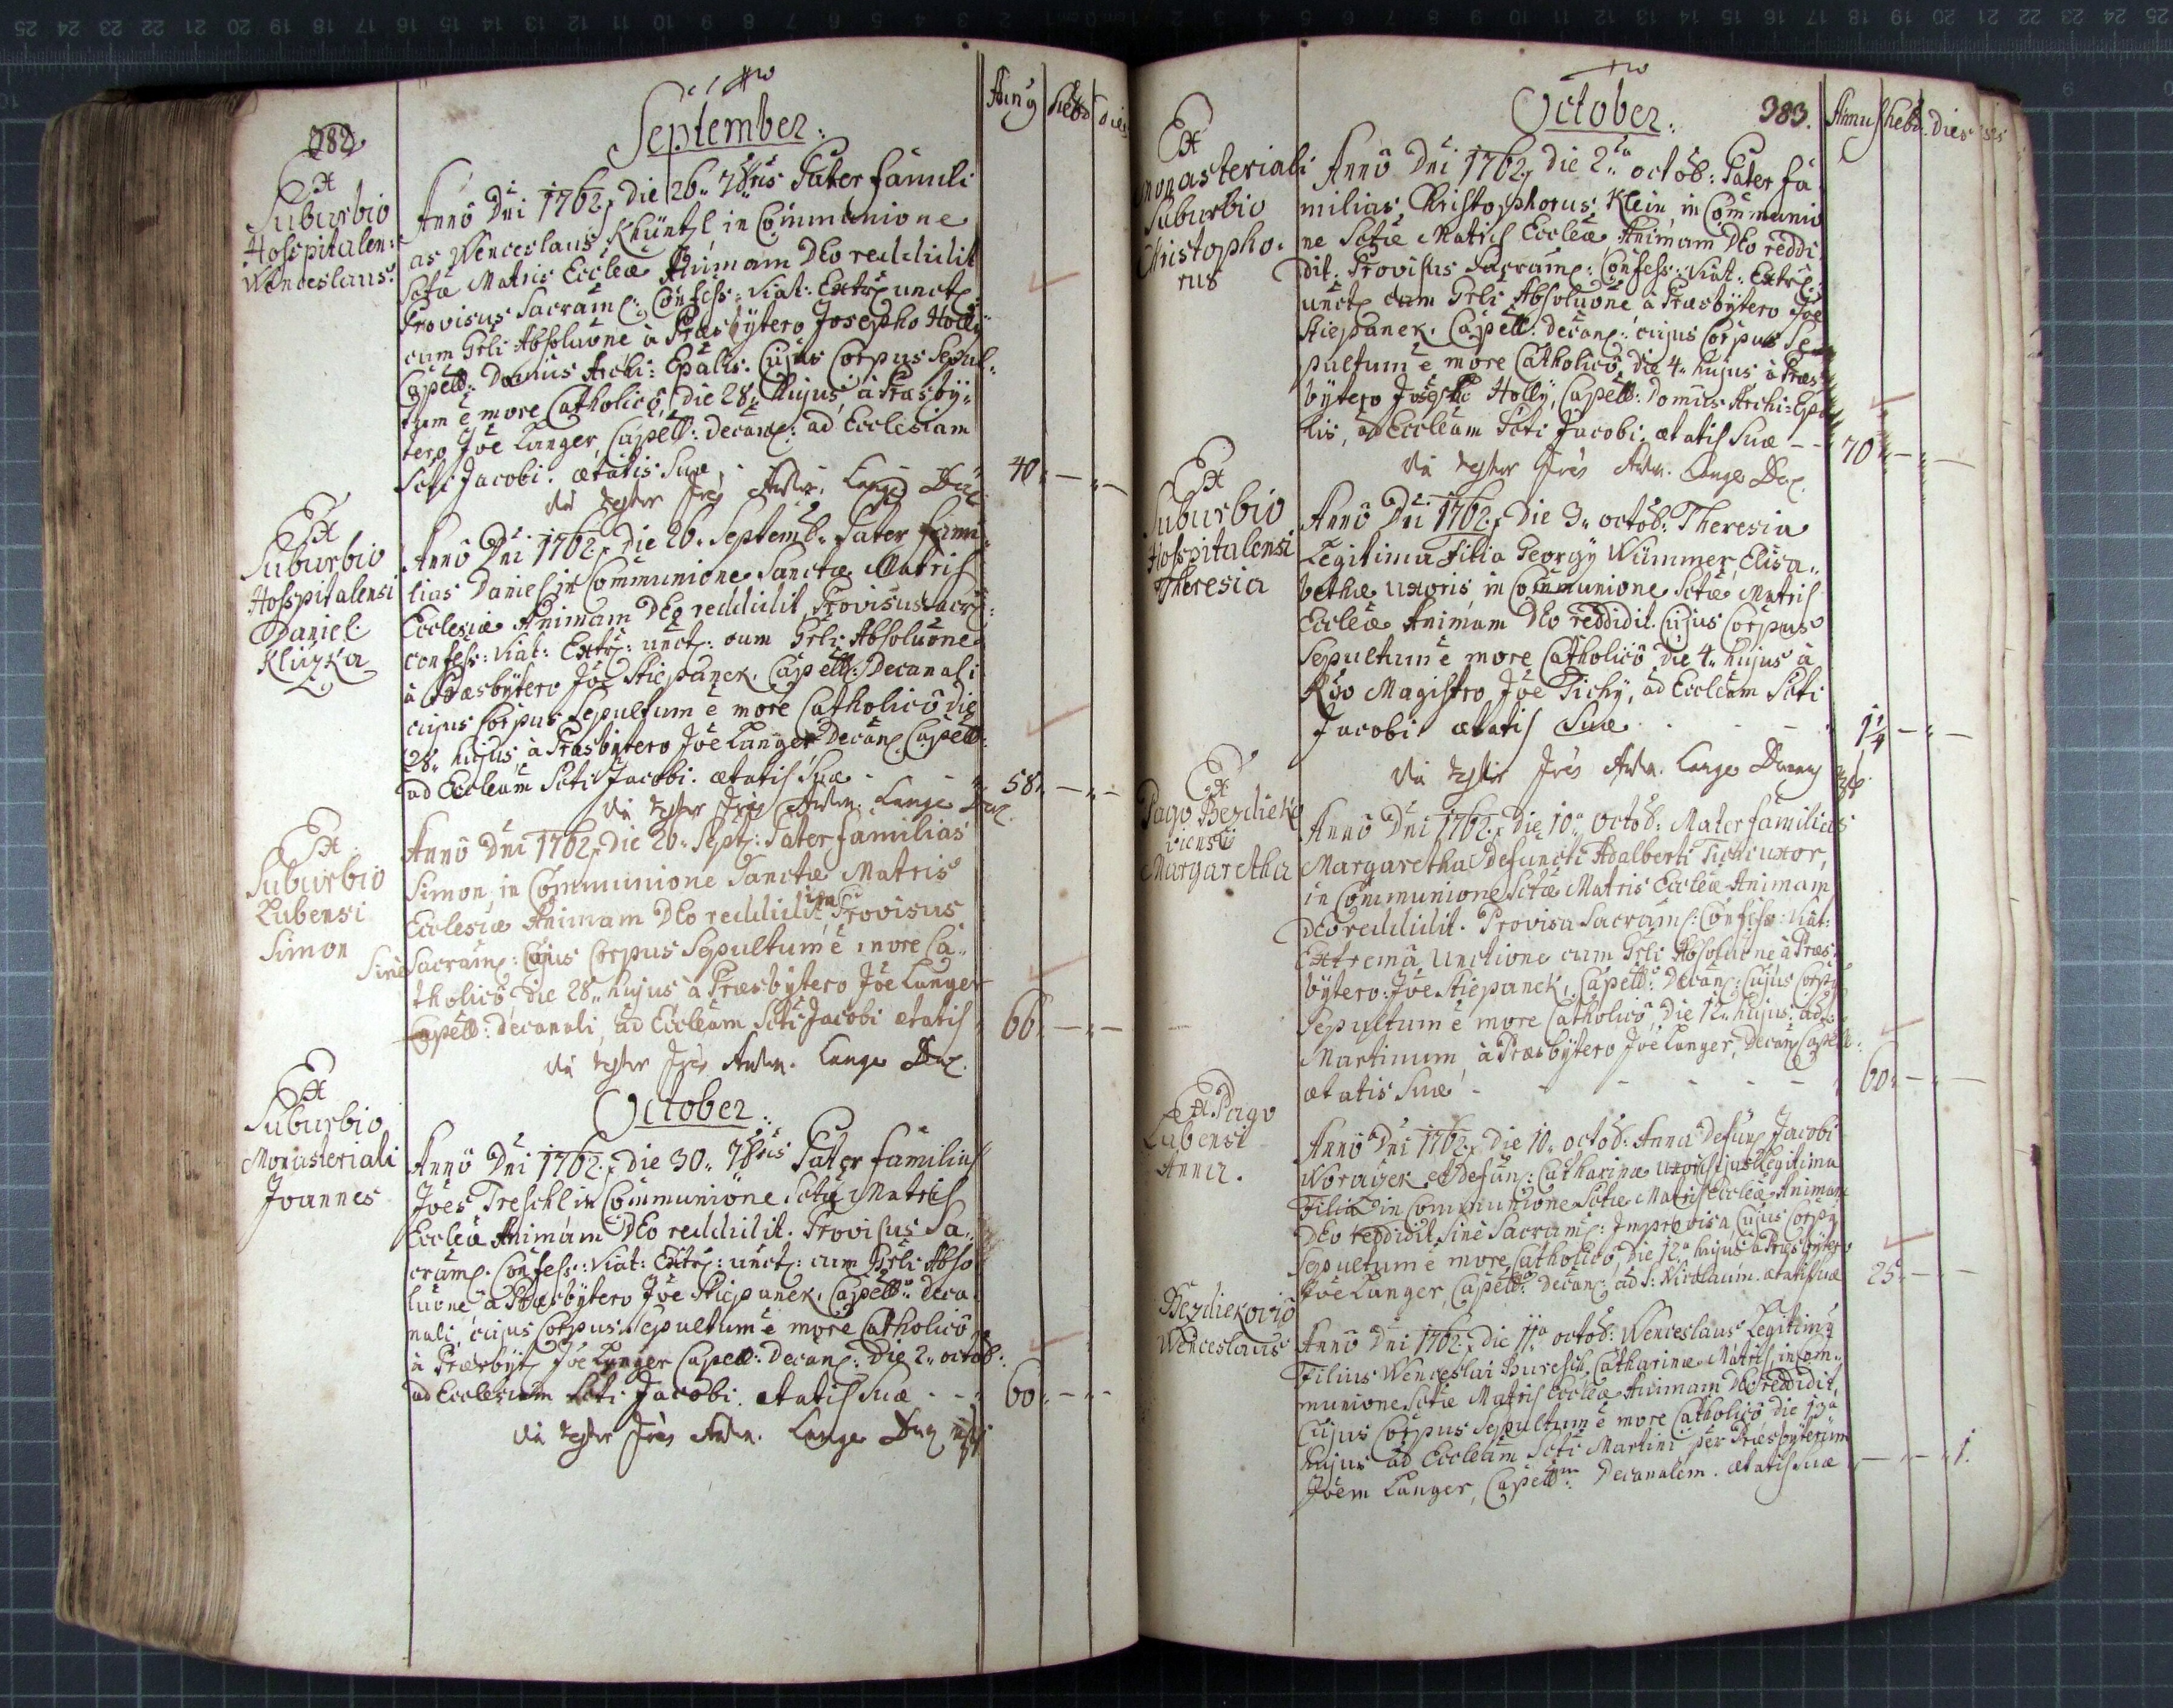 382
September.
Anng
Hebd
dies
Ex
Suburbio
Hosspitalen:
Wenceslaus.
Anno Dni 1762. Die 26. 7bris Pater famili
as Wenceslaus Khüntzl in Communione
Sctæ Matris Eccleæ Animam DEo reddidit
Provisus Sacram: Confess: Viat: Extr: unct
cum Grli Absoluõne à Præsbÿtero Josepho Hollÿ
Capell: Domus Archi: Epālis. Cujus Corpus Sepul-
tum ē more Catholico, die 28. Hujus à Præsbÿ-
tero Jõe Langer, Capell: decan: ad Ecclesiam
Scti Jacobi. ætatis Suæ
40. — —
Lange Dec.
Ex
Suburbio
Hosspitalensi
Daniel
Kluzka
Anno Dni 1762. Die 26. Septemb. Pater fami-
lias Daniel in Communione Sanctæ Matris
Ecclesiæ Animam DEo reddidit, Provisus Sacr:
confess: Viat: Extr: unct: cum Grli Absoluõne
à Præsbÿtero Jõe Stiepanek. Capell: Decanali
cujus Corpus Sepultum ē more Catholico die
28. hujus, à Præsbÿtero Jõe Langer Decan: Capell:
ad Eccleam Scti Jacobi. ætatis Suæ
58. — —
Lange Dec.
Ex
Suburbio
Lubensi
Simon
Anno Dni 1762. Die 26. Sept: Pater familias
Simon, in Communione Sanctæ Matris
Ecclesiæ Animam DEo reddidit im Provisus
Sine Sacram: Cujus Corpus Sepultum ē more Ca-
tholico Die 28. hujus à Præsbÿtero Jõe Langer
Capell: decanali, ad Eccleam Scti Jacobi ætatis
66. — —
Lange Dec.
October.
Ex
Suburbio
Monasteriali
Joannes
Anno Dni 1762. Die 30. 7bris Pater familias
Jões Treschl in Communione Sctæ Matris
Eccleæ Animam DEo reddidit. Provisus Sa-
cram. Confess: Viat: Extr: unct: cum Grli Abso
luõne à Præsbÿtero Jõe Stiepanek. Capell: Deca
nali, cujus Corpus Sepultum ē more Catholico
à Præsbyt Jõe Langer Capell: Decan: Die 2. octob:
ad Ecclesiam Scti Jacobi. ætatis Suæ
60. — —
Lange Dec
October.
383.
Annus
hebd.
Dies
Ex
Monasteriali
Suburbio
Christopho-
rus
Anno Dni 1762. Die 2. octob: Pater fa
milias, Khristophorus Klein, in Communio
ne Sctæ Matris Eccleæ Animam DEo reddi
dit. Provisus Sacram: Confess: Viat: Extr:
unct cum Grli Absoluõne à Præsbÿtero Jõe
Stiepanek. Capell: decan: cujus Corpus Se
pultum ē more Catholico, die 4. hujus à Præs
bÿtero Josepho Hollÿ, Capell: Domus Archi: Epa
lis, ad Eccleam Scti Jacobi. ætatis Suæ
70. — —
Lange Dec.
Ex
Suburbio
Hosspitalensi
Theresia
Anno Dni 1762. Die 3. octob: Theresia
Legitima Filia Georgÿ Wümmer, Elisa-
bethæ uxoris, in Communione Sctæ Matris
Eccleæ Animam DEo reddidit. Cujus Corpus
Sepultum ē more Catholico, die 4. hujus à
Rdo Magistro Jõe Tichÿ, ad Eccleam Scti
Jacobi ætatis Suæ
1 1/4 — —
Lange
Ex
Pago Bezdieko
viensÿ
Margaretha
Anno Dni 1762. Die 10. octob: Mater familias
Margaretha Defuncti Adalberti Tichi uxor,
in Communione Sctæ Matris Eccleæ Animam
DEo reddidit. Provisa Sacram: Confess: Viat:
Extremâ Unctione cum Grli Absoluõne à Præs
bÿtero: Jõe Stiepanek, Capell: Decan: Cujus Corps
Sepultum ē more Catholico, Die 12. hujus, ad S.
Martinum, à Præsbÿtero Jõe Langer, Decan: Capell:
ætatis Suæ
60. — —
Ex Pago
Lubensi
Anna.
Anno Dni 1762. Die 10. octob: Anna Defun: Jacobi
Woraczek et Defun: Catharinæ uxoris ejus Legitima
Filia in Communione Sctæ Matris Eccleæ Animam
DEo reddidit Sine Sacram: Improvisa, Cujus Corps
Sepultum ē more Catholico, die 12. hujus à Præsbÿtero
Jõe Langer, Capell: Decan: ad S. Nicolaum. ætatis Suæ
25. — —
Bezdiekovio
Wenceslaus
Anno Dni 1762. Die 11. octob: Wenceslaus Legitimg
Filius Wenceslai Buresch, Catharinæ Matris, in Com-
munione Sctæ Matris Eccleæ Animam DEo reddidit,
Cujus Corpus Sepultum ē more Catholico, die 13.
hujus ad Eccleam Scti Martini per Præsbÿterum
Jõem Langer, Capell: Decanalem. ætatis Suæ
— — 1.